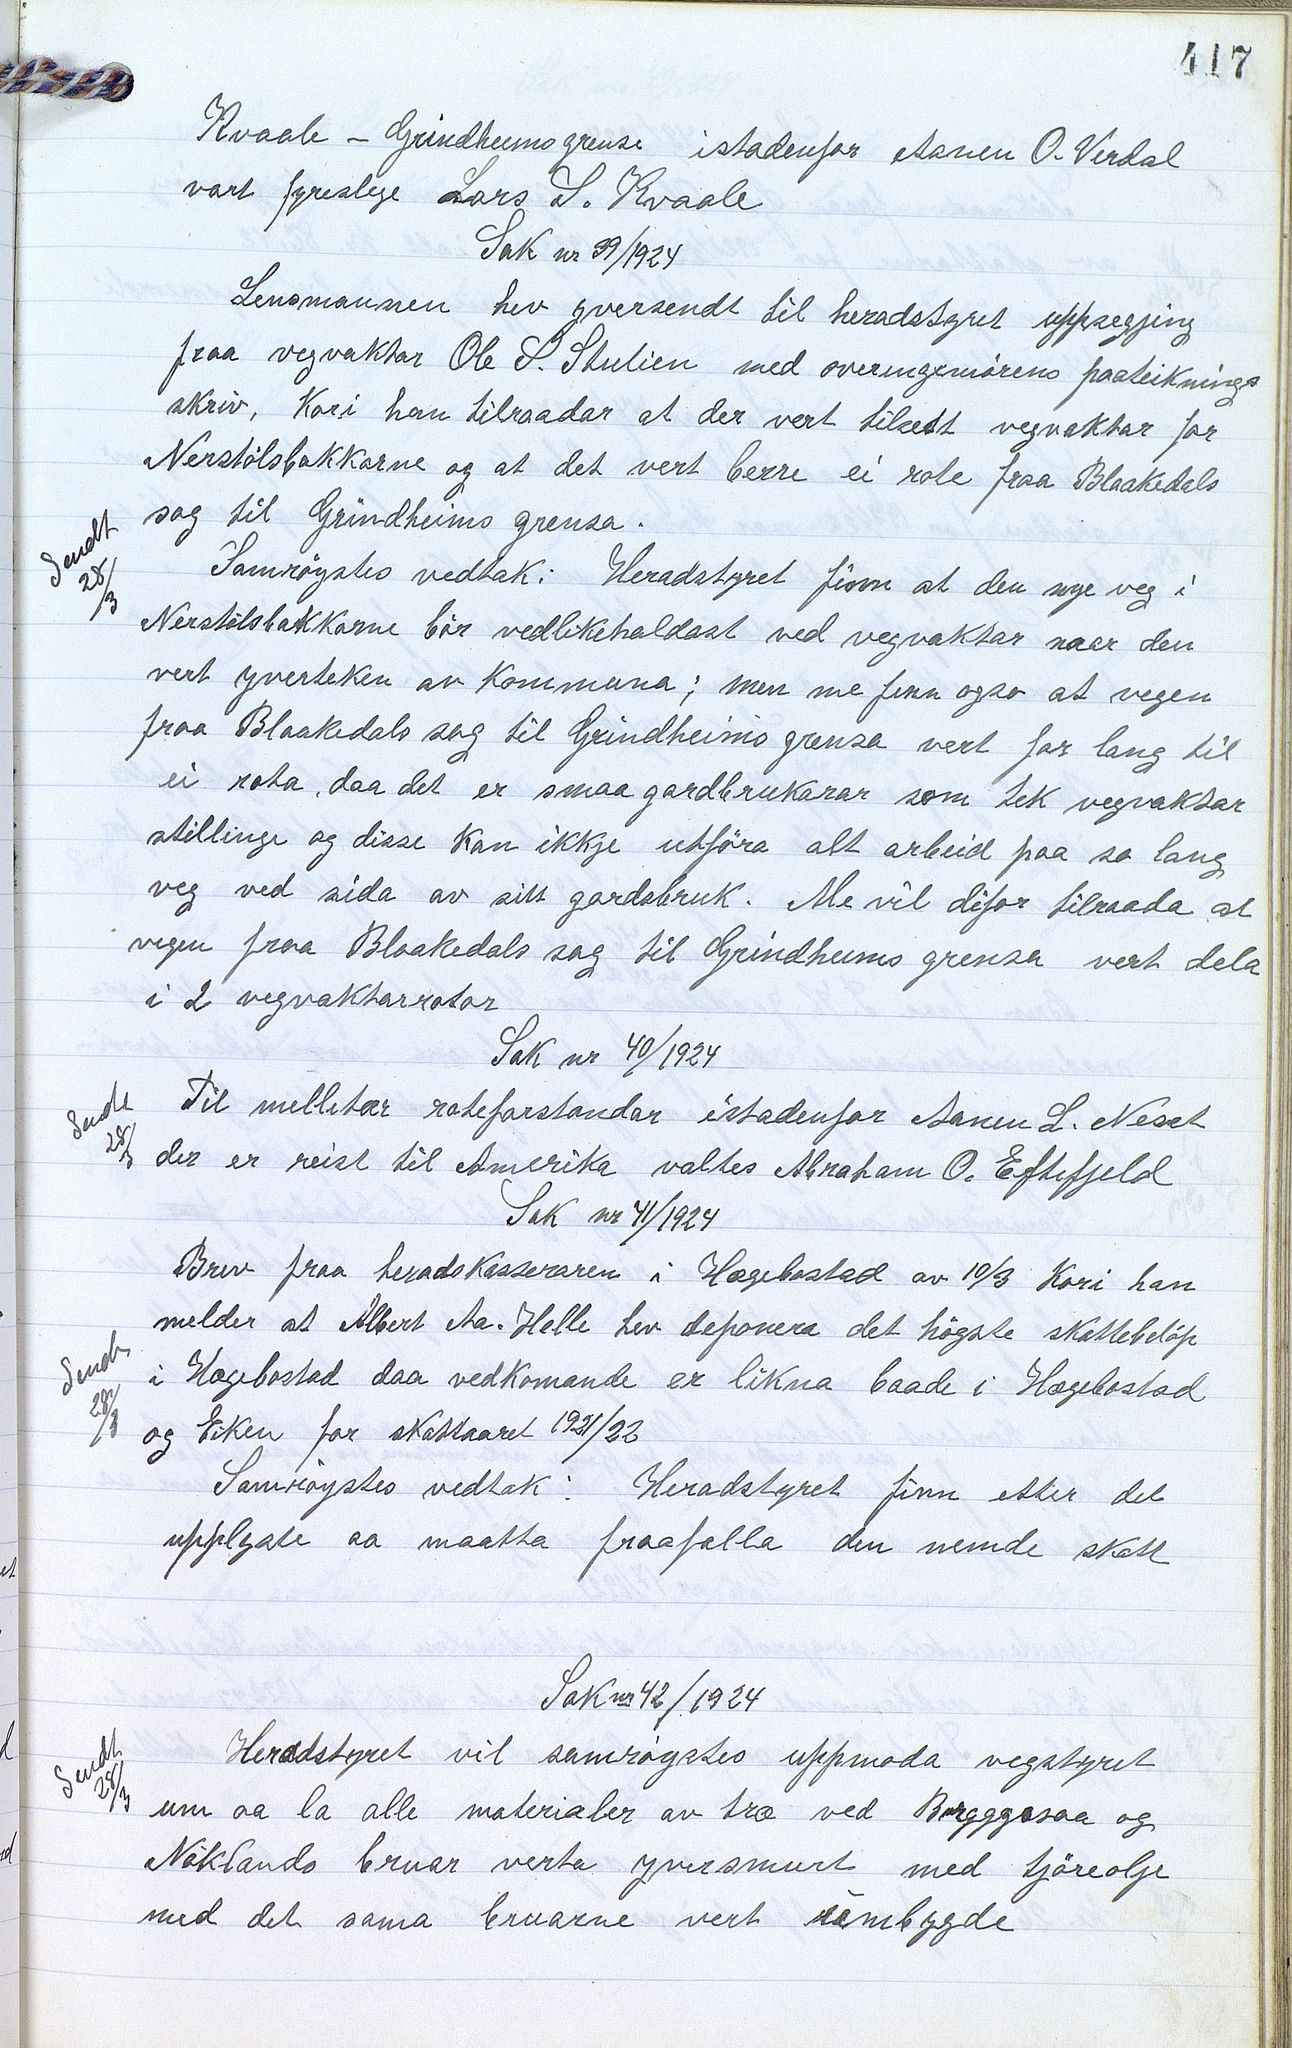 417
Kvaale - Grindheims grense istadenfor Aanen O. Verdal
vart fyreslege Lars S. Kvaale
Sak nr 39/1924
Lensmannen hev yversendt til heradstyret uppsegjing
fraa vegvaktar Ole S. Stulien med overingeniörens paateiknings
skriv, Kori han tilraadar at der vert tilsett vegvaktar for
Nerstölsbakkarne og at det vert berre ei role fraa Blaakedals
sag til Grindheims grensa.
Sendt
28/3
Samröystes vedtak: Heradstyret finn at den nye veg i
Nerstölsbakkarne bör vedlikehaldast ved vegvaktar naar den
vert yverteken av Kommuna; men me finn ogso at vegen
fraa Blaakedals sag til Grindheims grensa vert for lang til
ei rota, daa det er smaa gardbrukarar som tek vegvaktar
stillinge og disse kan ikkje utföra alt arbeid paa so lang
veg ved sida av sitt gardsbruk. Me vil difor tilraada at
vegen fraa Blaakedals sag til Grindheims grensa vert dela
i 2 vegvaktarrotar
Sak nr 40/1924
Sendt
28/3
Til melletær roteforstandar istadenfor Aanen L. Neset
der er reist til Amerika valtes Abraham O. Eftefjeld
Sak nr 41/1924
Brev fraa heradskasseraren i Hægebostad av 10/3 Kori han
melder at Albert Aa. Helle hev deponera det högste skattebelöp
Sendt
28/3
i Hægebostad daa vedkomande er likna baade i Hægebostad
og Eiken for skattaaret 1921/22
Samröystes vedtak: Heradstyret finn etter det
upplyste aa maatta fraafalla den nemde skatt
Sak nr 42/1924
Sendt
28/3
Heradstyret vil samröystes uppmoda vegstyret
um aa la alle materialer av træ ved og
Nöklands bruar verta yversmurt med tjöreolje
med det sama bruarne vert umbygde